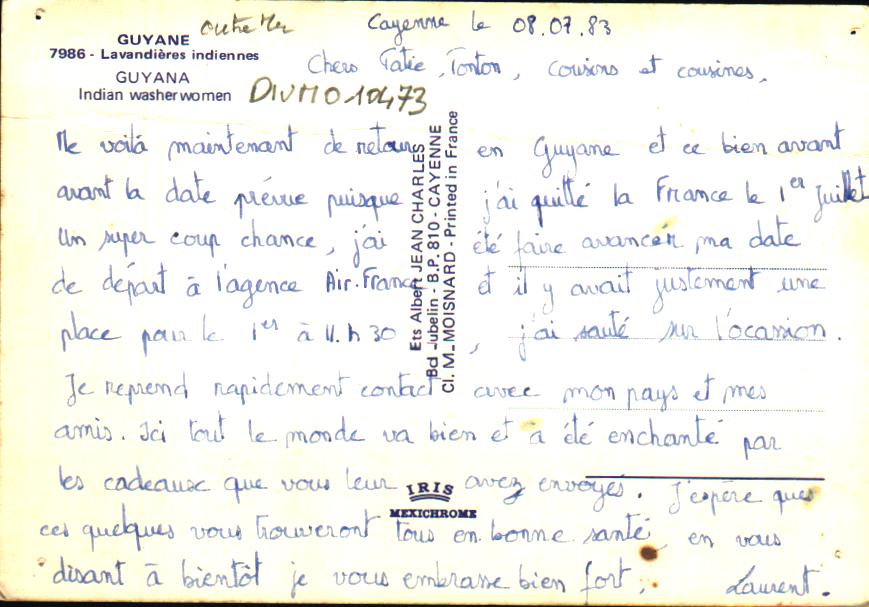 GUYANE
7986 - Lavandières indiennes
GUYANA
Indian washerwomen
outre Mer
DIVMO-10473
Cayenne le 08.07.83
Chers Tatie, Tonton, cousins et cousines,
Me voilà maintenant de retour en Guyane et ce bien avant
avant la date prévue puisque j'ai quitté la France le 1er Juillet
Un super coup chance, j'ai été faire avancer ma date
de départ à l'agence Air-France et il y avait justement une
place pour le 1er à 11.h 30, j'ai sauté sur l'occasion.
Je reprend rapidement contact avec mon pays et mes
amis. Ici tout le monde va bien et à été enchanté par
les cadeaux que vous leur avez envoyés. J'espère que
ces quelques vous trouveront tous en bonne santé, en vous
disant à bientôt je vous embrasse bien fort,
Laurent.
Ets Albert JEAN CHARLES
Bd Jubelin - B.P. 810 - CAYENNE
Cl. M. MOISNARD - Printed in France
IRIS
MEXICHROME